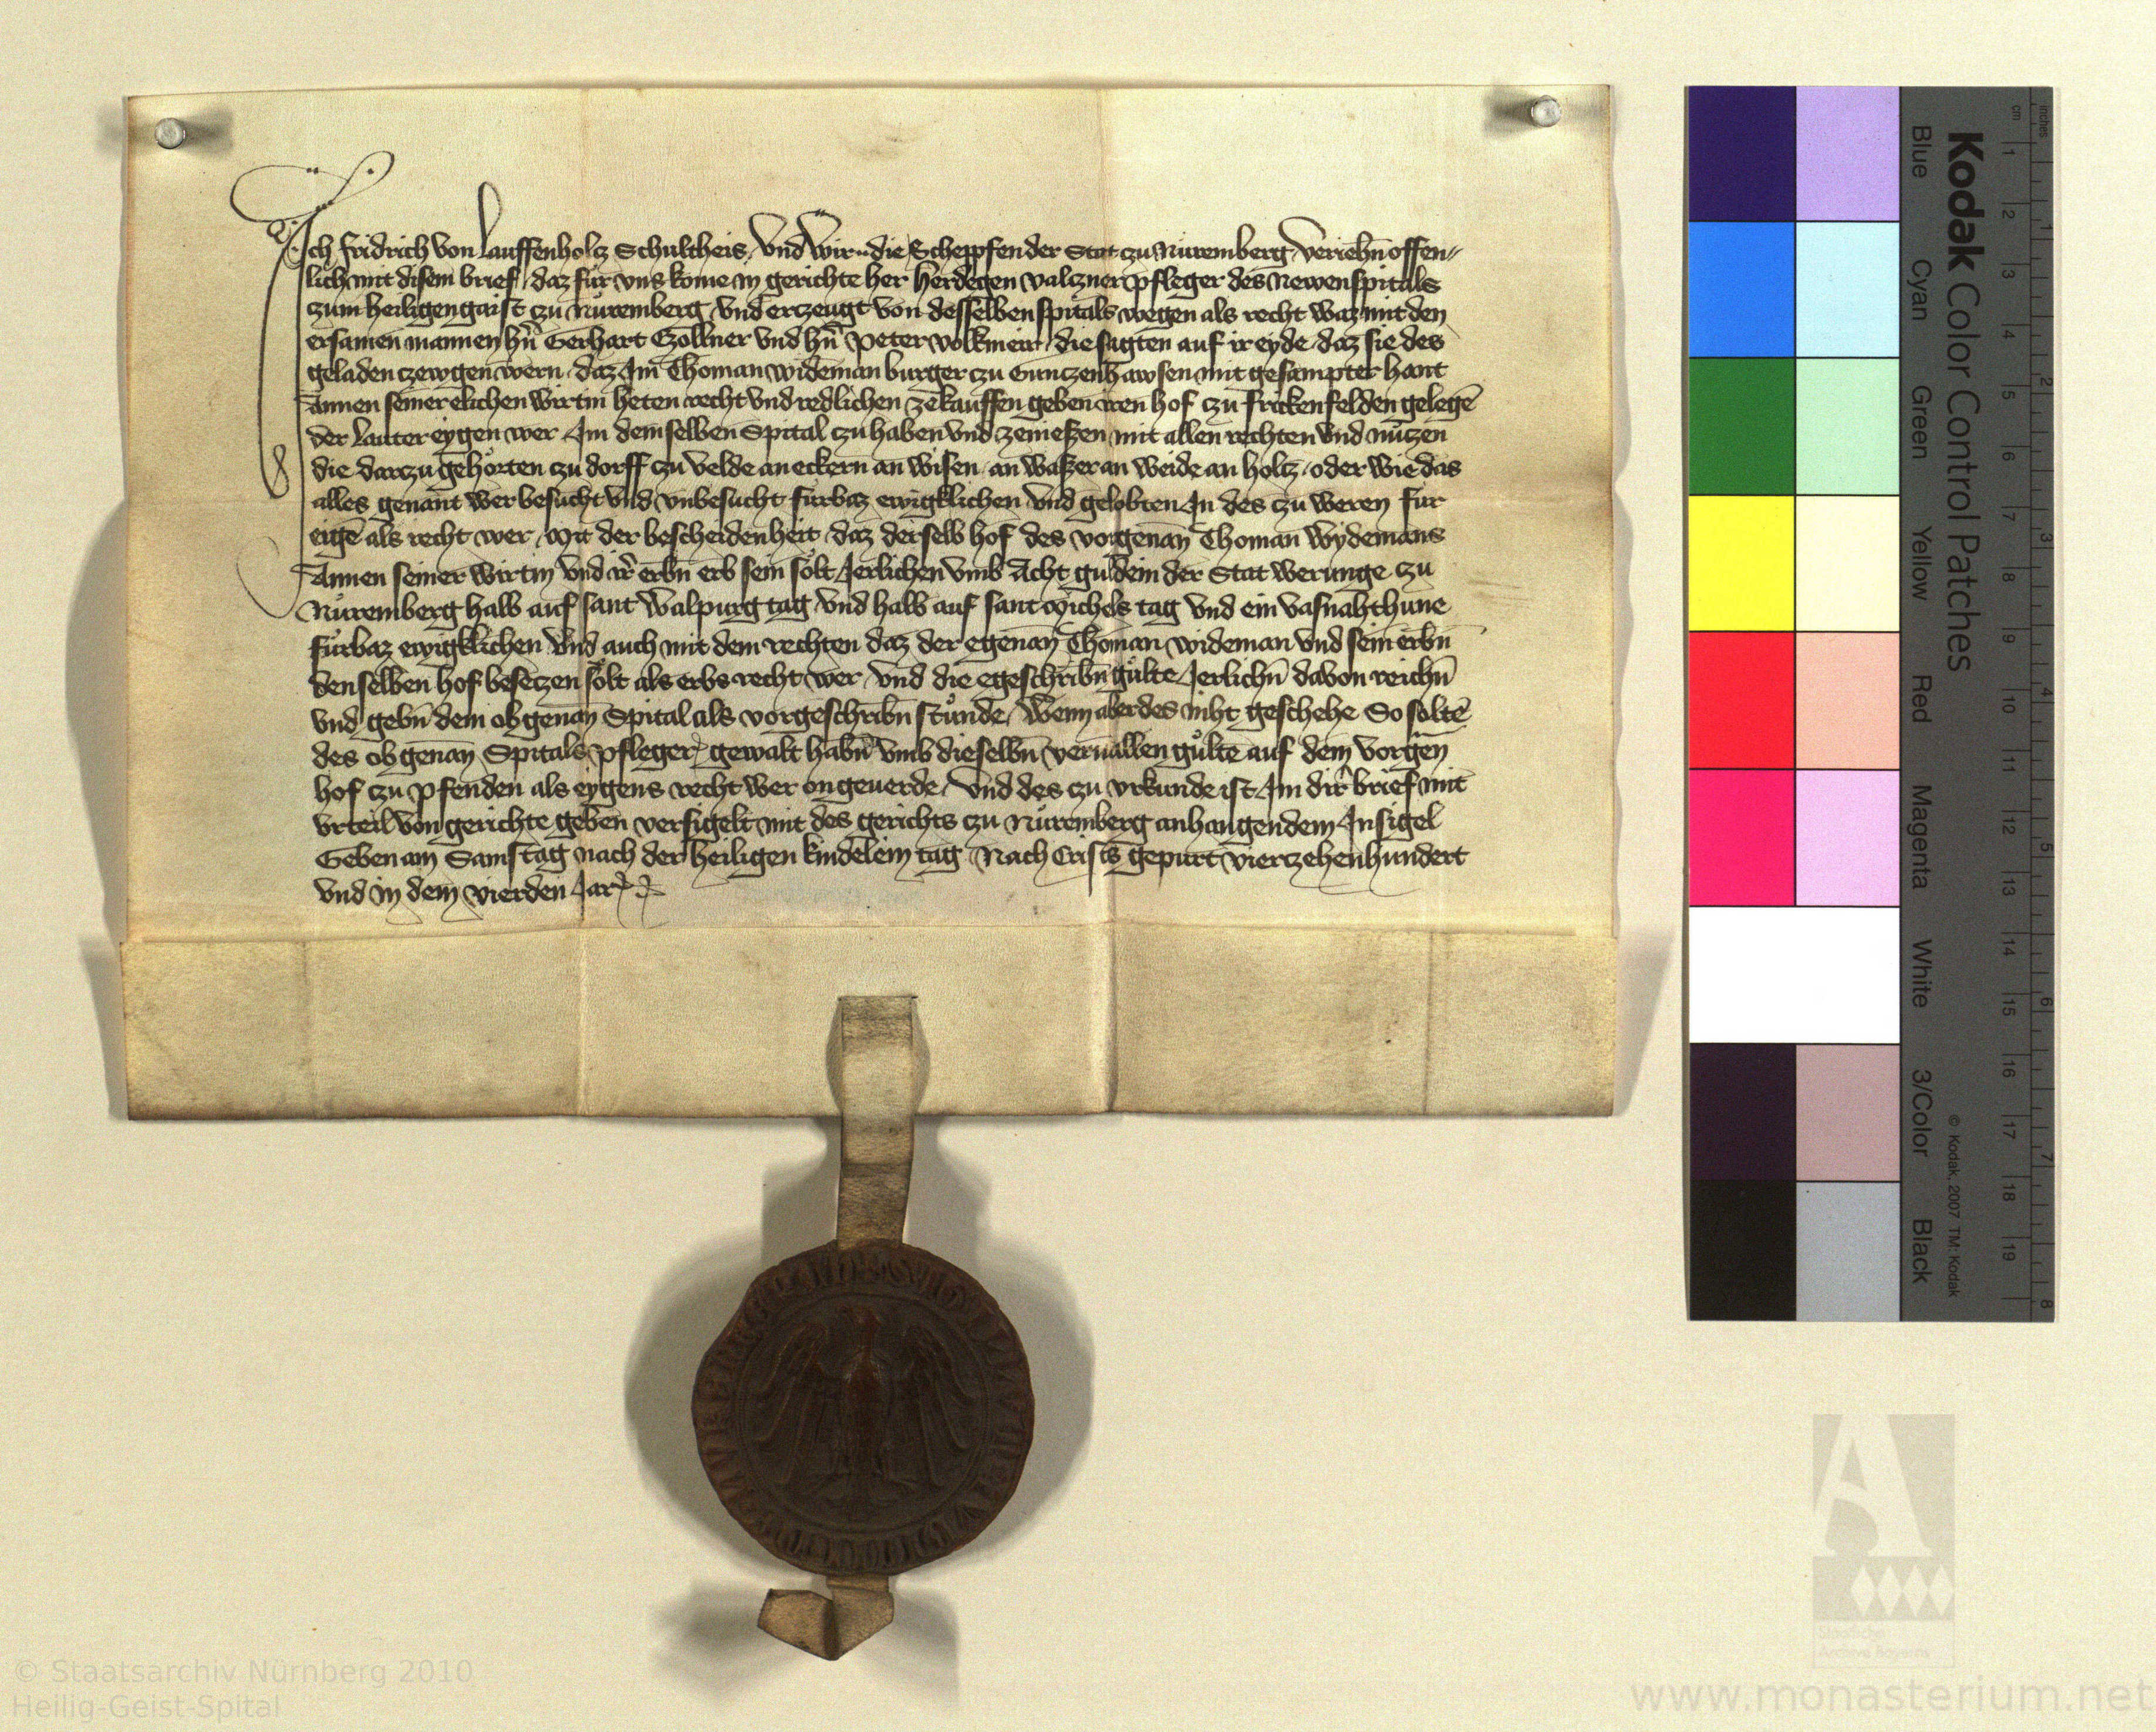 Ich fridrich von Lauffenholz Schultheis, vnd wir die Schepffen der Stat zu Nuremberg veriehn̄ offen⸗
lich mit disem brief, daz fur vns kome in gerichte her herdegen valczner pfleger des Newenspitals
zum heiligengaist zu Nůremberg vnd erzeugt von desselben spitals wegen als recht waz mit den
ersamen mannen hn̄ Gerhart Czollner vnd hn̄ Peter volkmeir die sagten auf ir eyde daz sie des
geladen czewgen wern daz Im Thoman wideman burger czu Gunczenhawsen mit gesampter hant
Annen seiner elichen wirtin heten recht vnd redlichen zekauffen geben iren hof czu frickenfelden gelegē
der lauter eygen wer Im demselben Spital czu haben vnd zenießen mit allen rechten vnd nůczen
die darczu gehörten czu dorff czu velde an eckern an wisen an waßer an weide an holcz oder wie das
alles genant wer besucht vnd vnbesucht furbaz ewigklichen vnd gelobten In des czu weren fur
eigē als recht wer, Mit der bescheidenheit daz derselb hof des vorgenan̄ Thoman Wydemans
Annen seiner wirtin vnd ir̄ erbn̄ erb sein sölt Jerlichen vmb Acht guldein der Stat werunge czu
Nůremberg halb auf sant Walpurg tag vnd halb auf sant Michels tag vnd ein vasnahthune
fůrbaz ewigklichen vnd auch mit dem rechten daz der egenan̄ Thoman wideman vnd sein erbn̄
denselben hof besetzen sölt als erbs recht wer vnd die egeschribn̄ gůlte Jerlichn̄ davon reichn̄
vnd gebn̄ dem obgenan̄ Spital als vorgeschribn̄ stůnde, Wenn aber des niht geschehe So soltē
des obgenan̄ Spitals pfleger gewalt habn̄ vmb dieselbn̄ veruallen gůlte auf dem vorgn̄
hof czu pfenden als eygens recht wer ongeuerde, Vnd des czu vrkunde ist Im dir̄ brief mit
vrteil von gerichte geben versigelt mit des gerichts czu Nůremberg anhangendem Insigel
Geben am Samstag nach der heiligen kindelein tag Nach Crists gepurt vierczehenhundert
vnd in dem vierden Jar
Kodak Color Control Patches
Blue Cyan Green Yellow Red Magenta White 3/Color Black
© Kodak, 2007 TM: Kodak
inches 1 2 3 4 5 6 7 8
cm 1 2 3 4 5 6 7 8 9 10 11 12 13 14 15 16 17 18 19
© Staatsarchiv Nürnberg 2010
Heilig-Geist-Spital
Staatliche
Archive Bayerns
www.monasterium.net